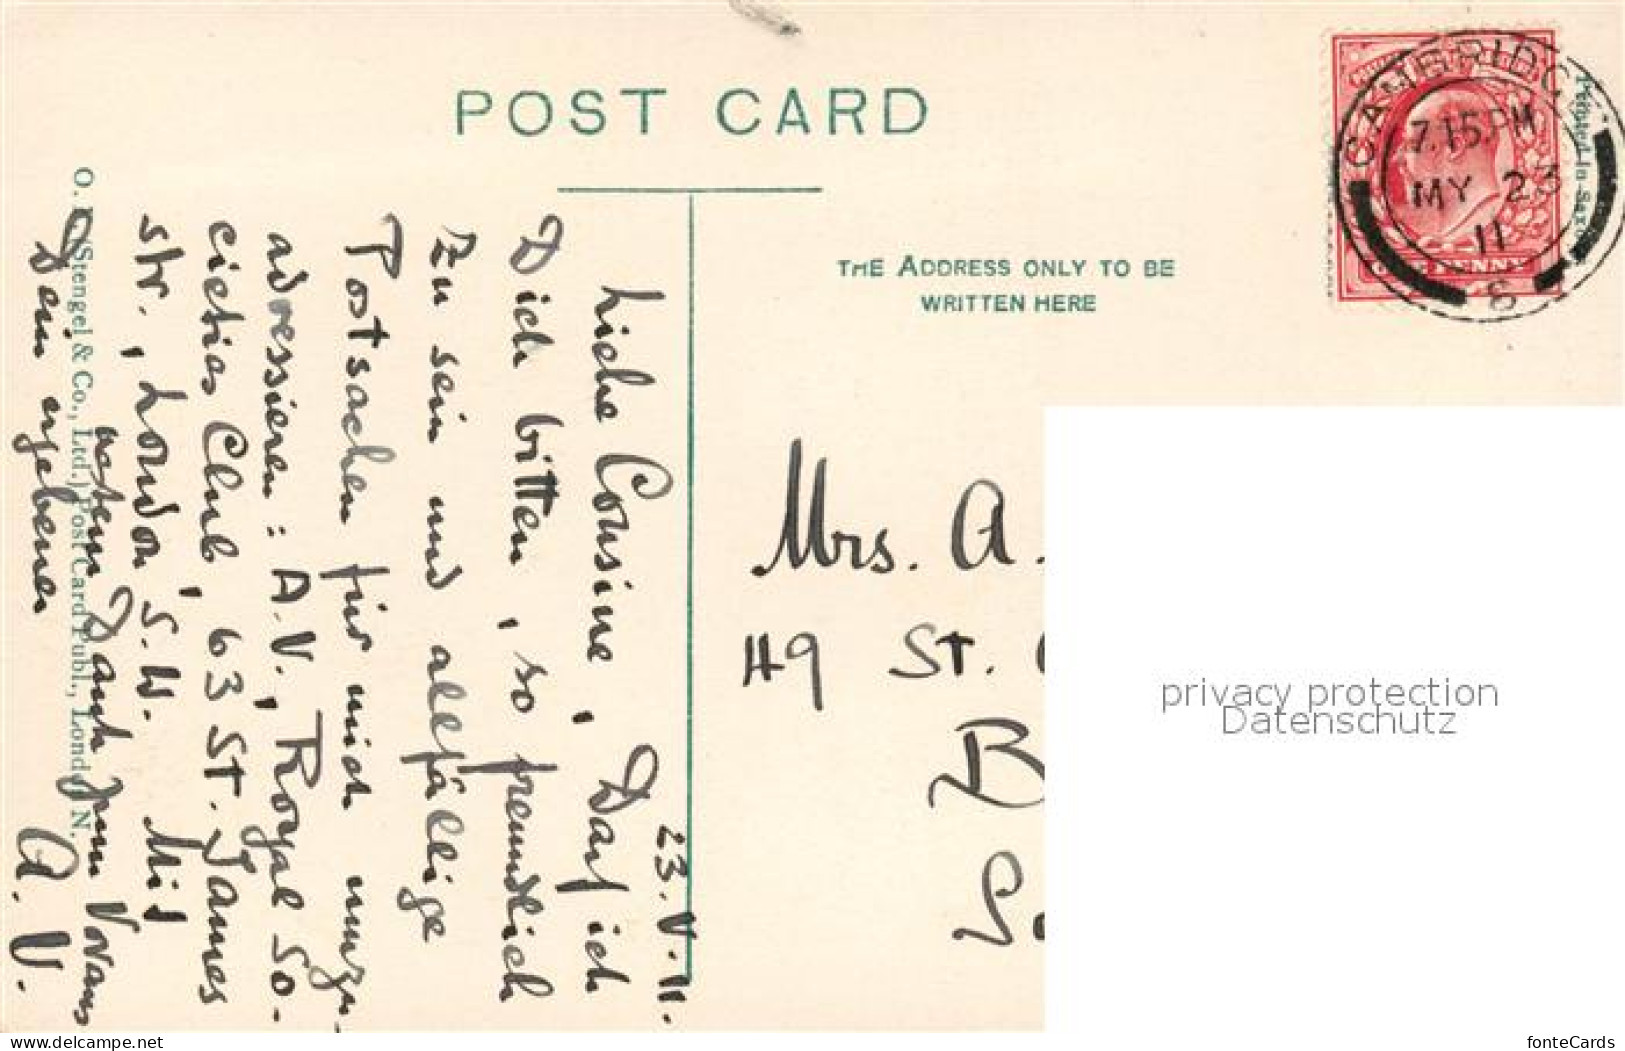 POST CARD
THE ADDRESS ONLY TO BE
WRITTEN HERE
CAMBRIDGE
7.15 PM
MY 23
11
S
ONE PENNY
Printed in Saxony
23.V.11.
Liebe Cousine, Darf ich
Dich bitten, so freundlich
zu sein und allfällige
Postsachen für mich umzu-
adressieren: A.V., Royal So-
cieties Club, 63 St. James
Str., London S.W. Mit
bestem Dank zum Voraus
Dein ergebener
A. V.
O. (Stengel & Co., Ltd.) Post Card Publ., London N.
Mrs. A.
49 St.
B
privacy protection
Datenschutz
www.delcampe.net
fonteCards